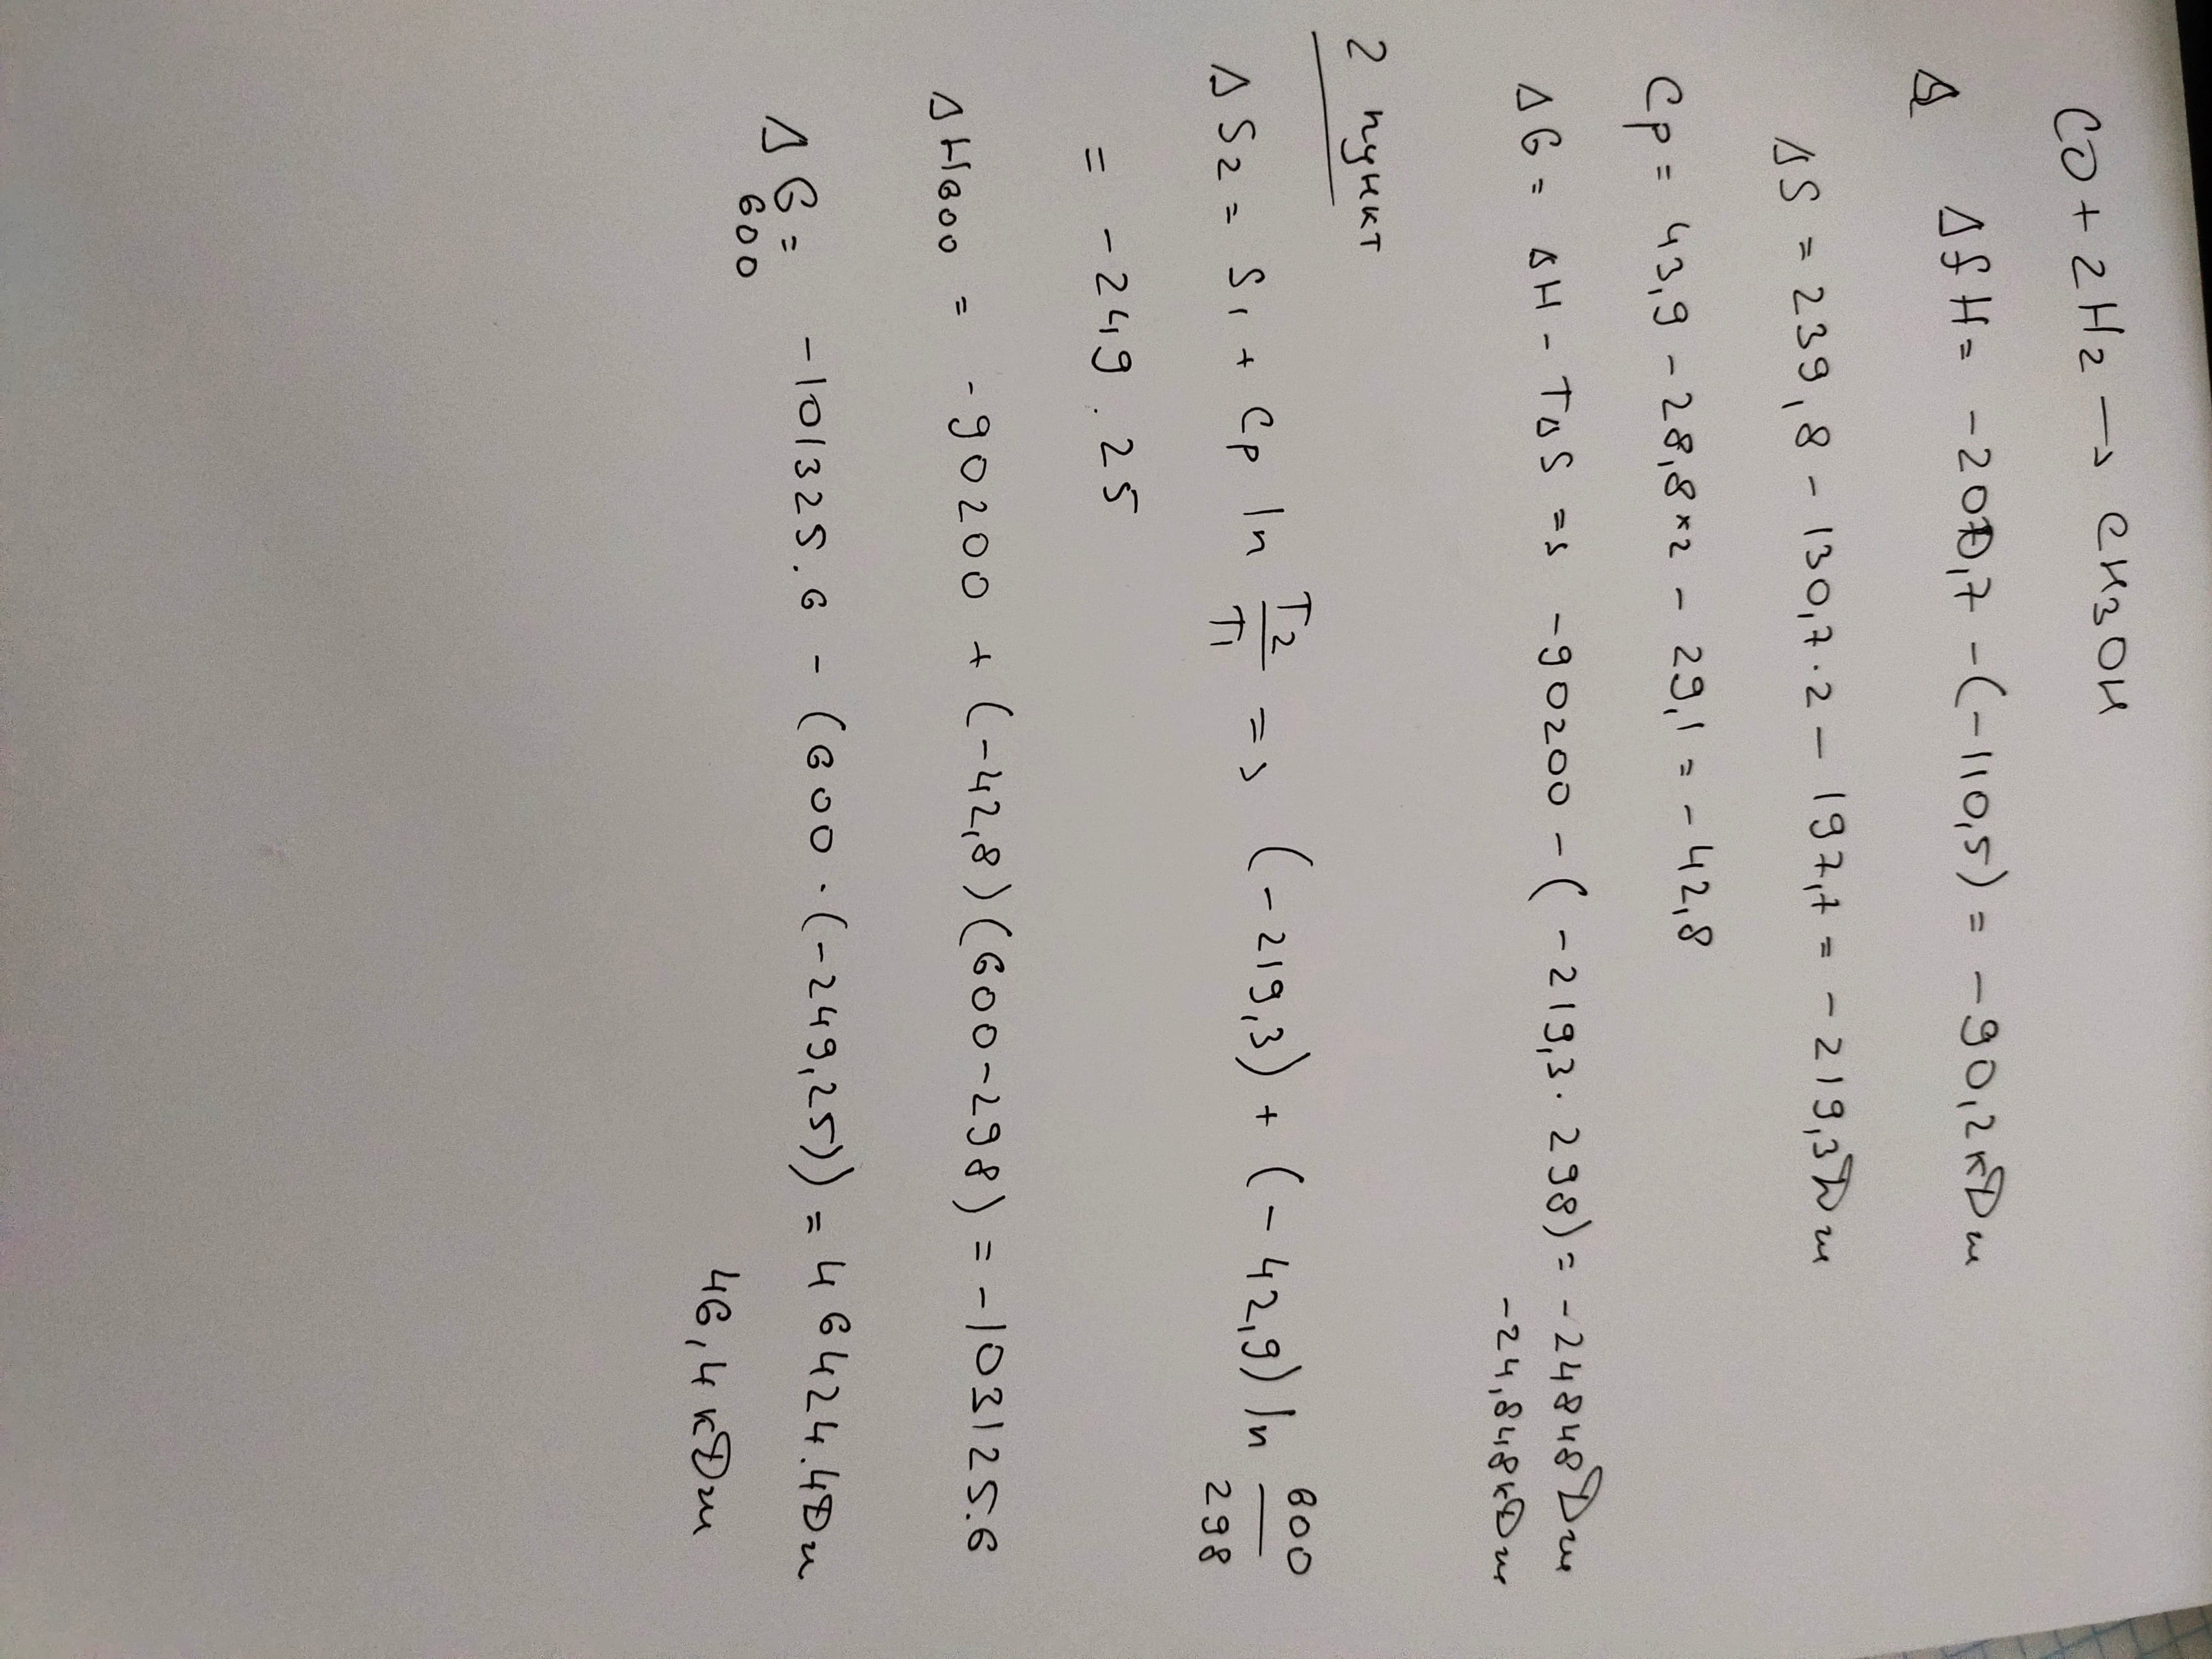 CO + 2H2 → CH3OH
ΔfH = -200,7 - (-110,5) = -90,2 кДж
ΔS = 239,8 - 130,7 · 2 - 197,7 = -219,3 Дж
Cp = 43,9 - 28,8×2 - 29,1 = -42,8
ΔG = ΔH - TΔS => -90200 - (-219,3 · 298) = -24848 Дж
-24,848 кДж
2 пункт
ΔS2 = S1 + Cp ln T2/T1 => (-219,3) + (-42,9) ln 600/298
= -249.25
ΔH600 = -90200 + (-42,8)(600-298) = -103125.6
ΔG600 = -101325.6 - (600 · (-249,25)) = 46424.4 Дж
46,4 кДж